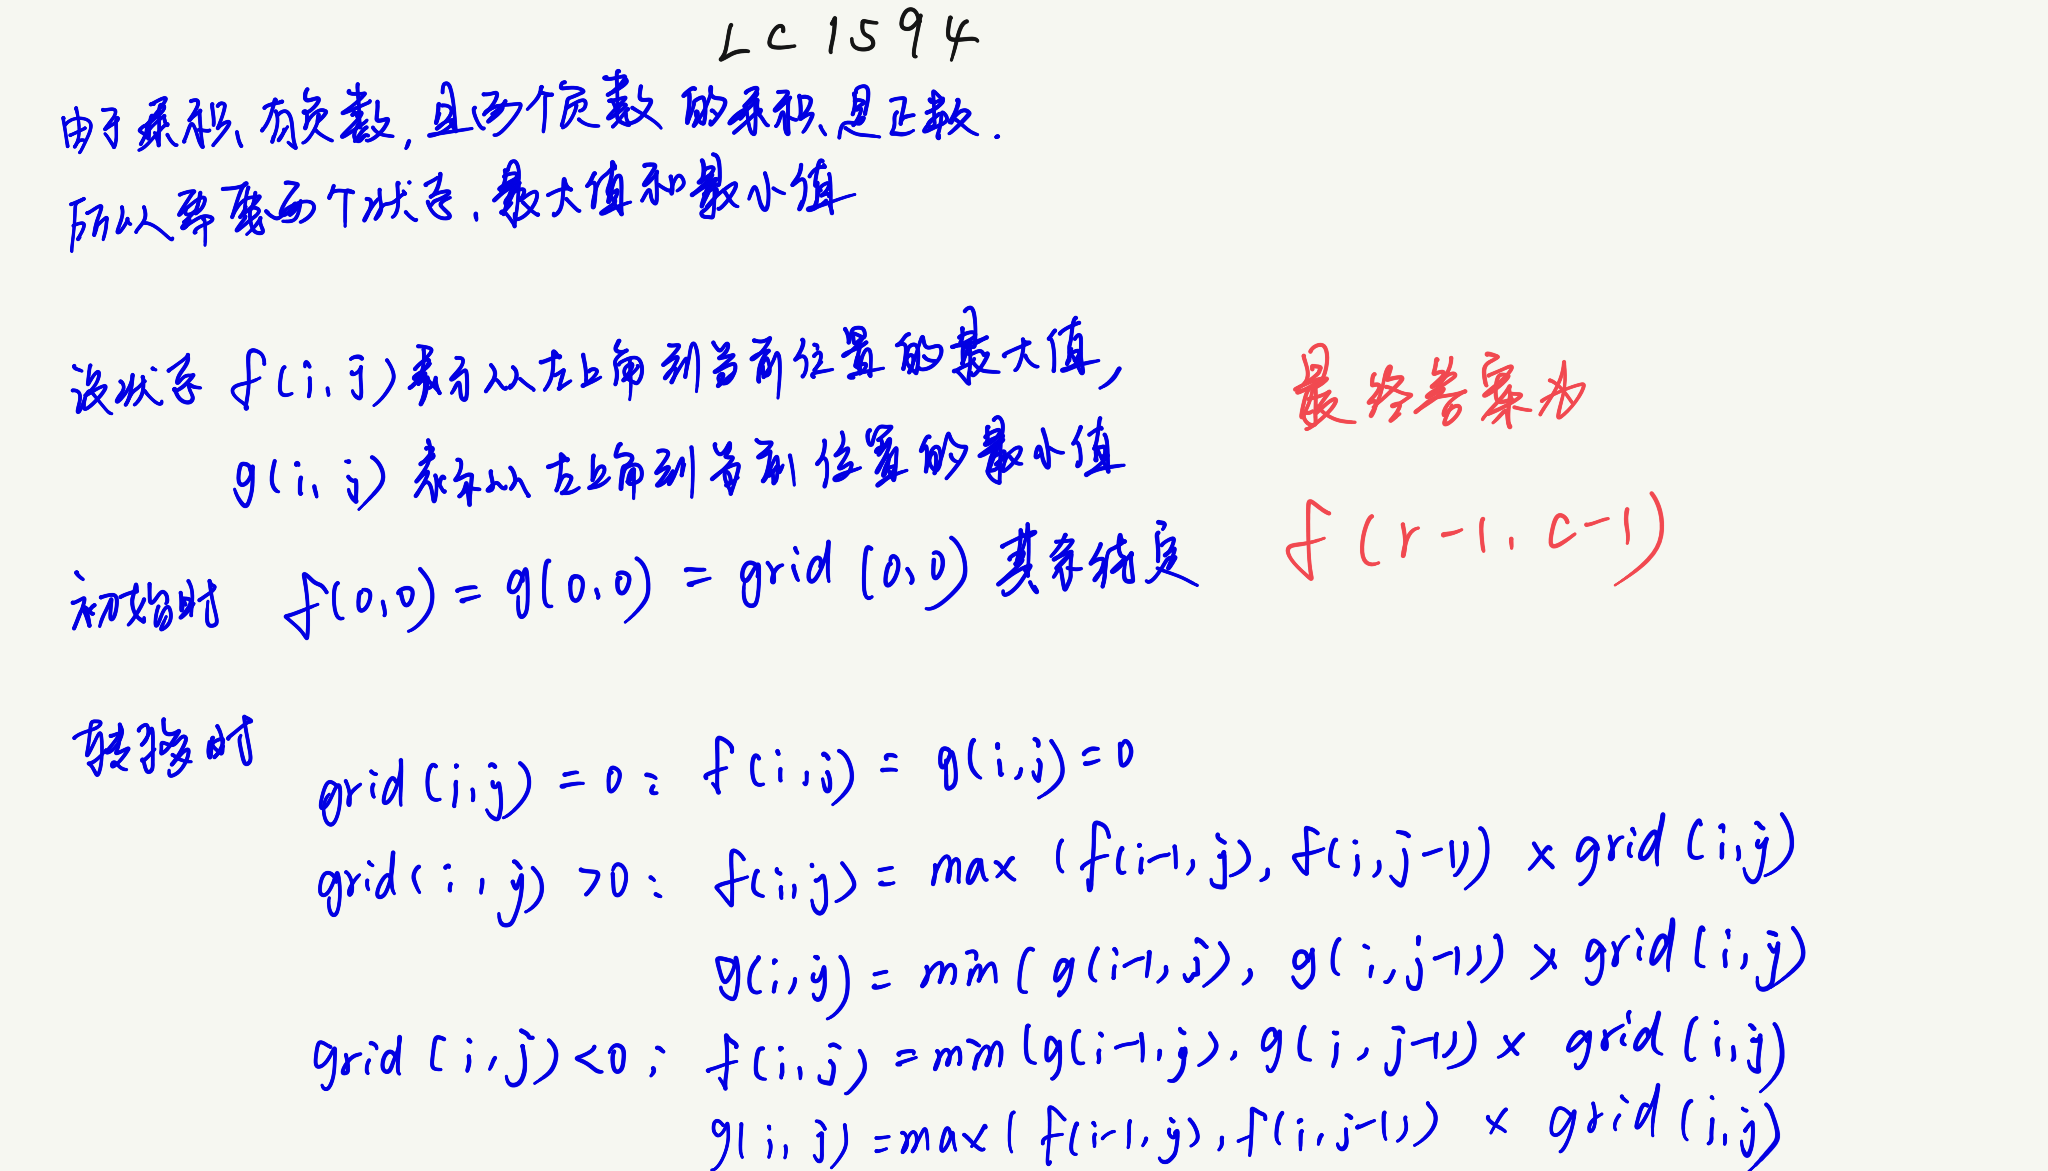 LC 1594
由于乘积有负数,且两个负数的乘积是正数.
所以需要两个状态,最大值和最小值
设状态 f(i,j)表示从左上角到当前位置的最大值,
g(i,j) 表示从左上角到当前位置的最小值
初始时 f(0,0) = g(0,0) = grid(0,0) 其余待定
最终答案为
f(r-1, c-1)
转移时
grid(i,j) = 0: f(i,j) = g(i,j) = 0
grid(i,j) >0: f(i,j) = max (f(i-1,j), f(i,j-1)) × grid(i,j)
g(i,j) = min(g(i-1,j), g(i,j-1)) × grid(i,j)
grid(i,j)<0: f(i,j) = min(g(i-1,j), g(i,j-1)) × grid(i,j)
g(i,j) = max(f(i-1,j), f(i,j-1)) × grid(i,j)